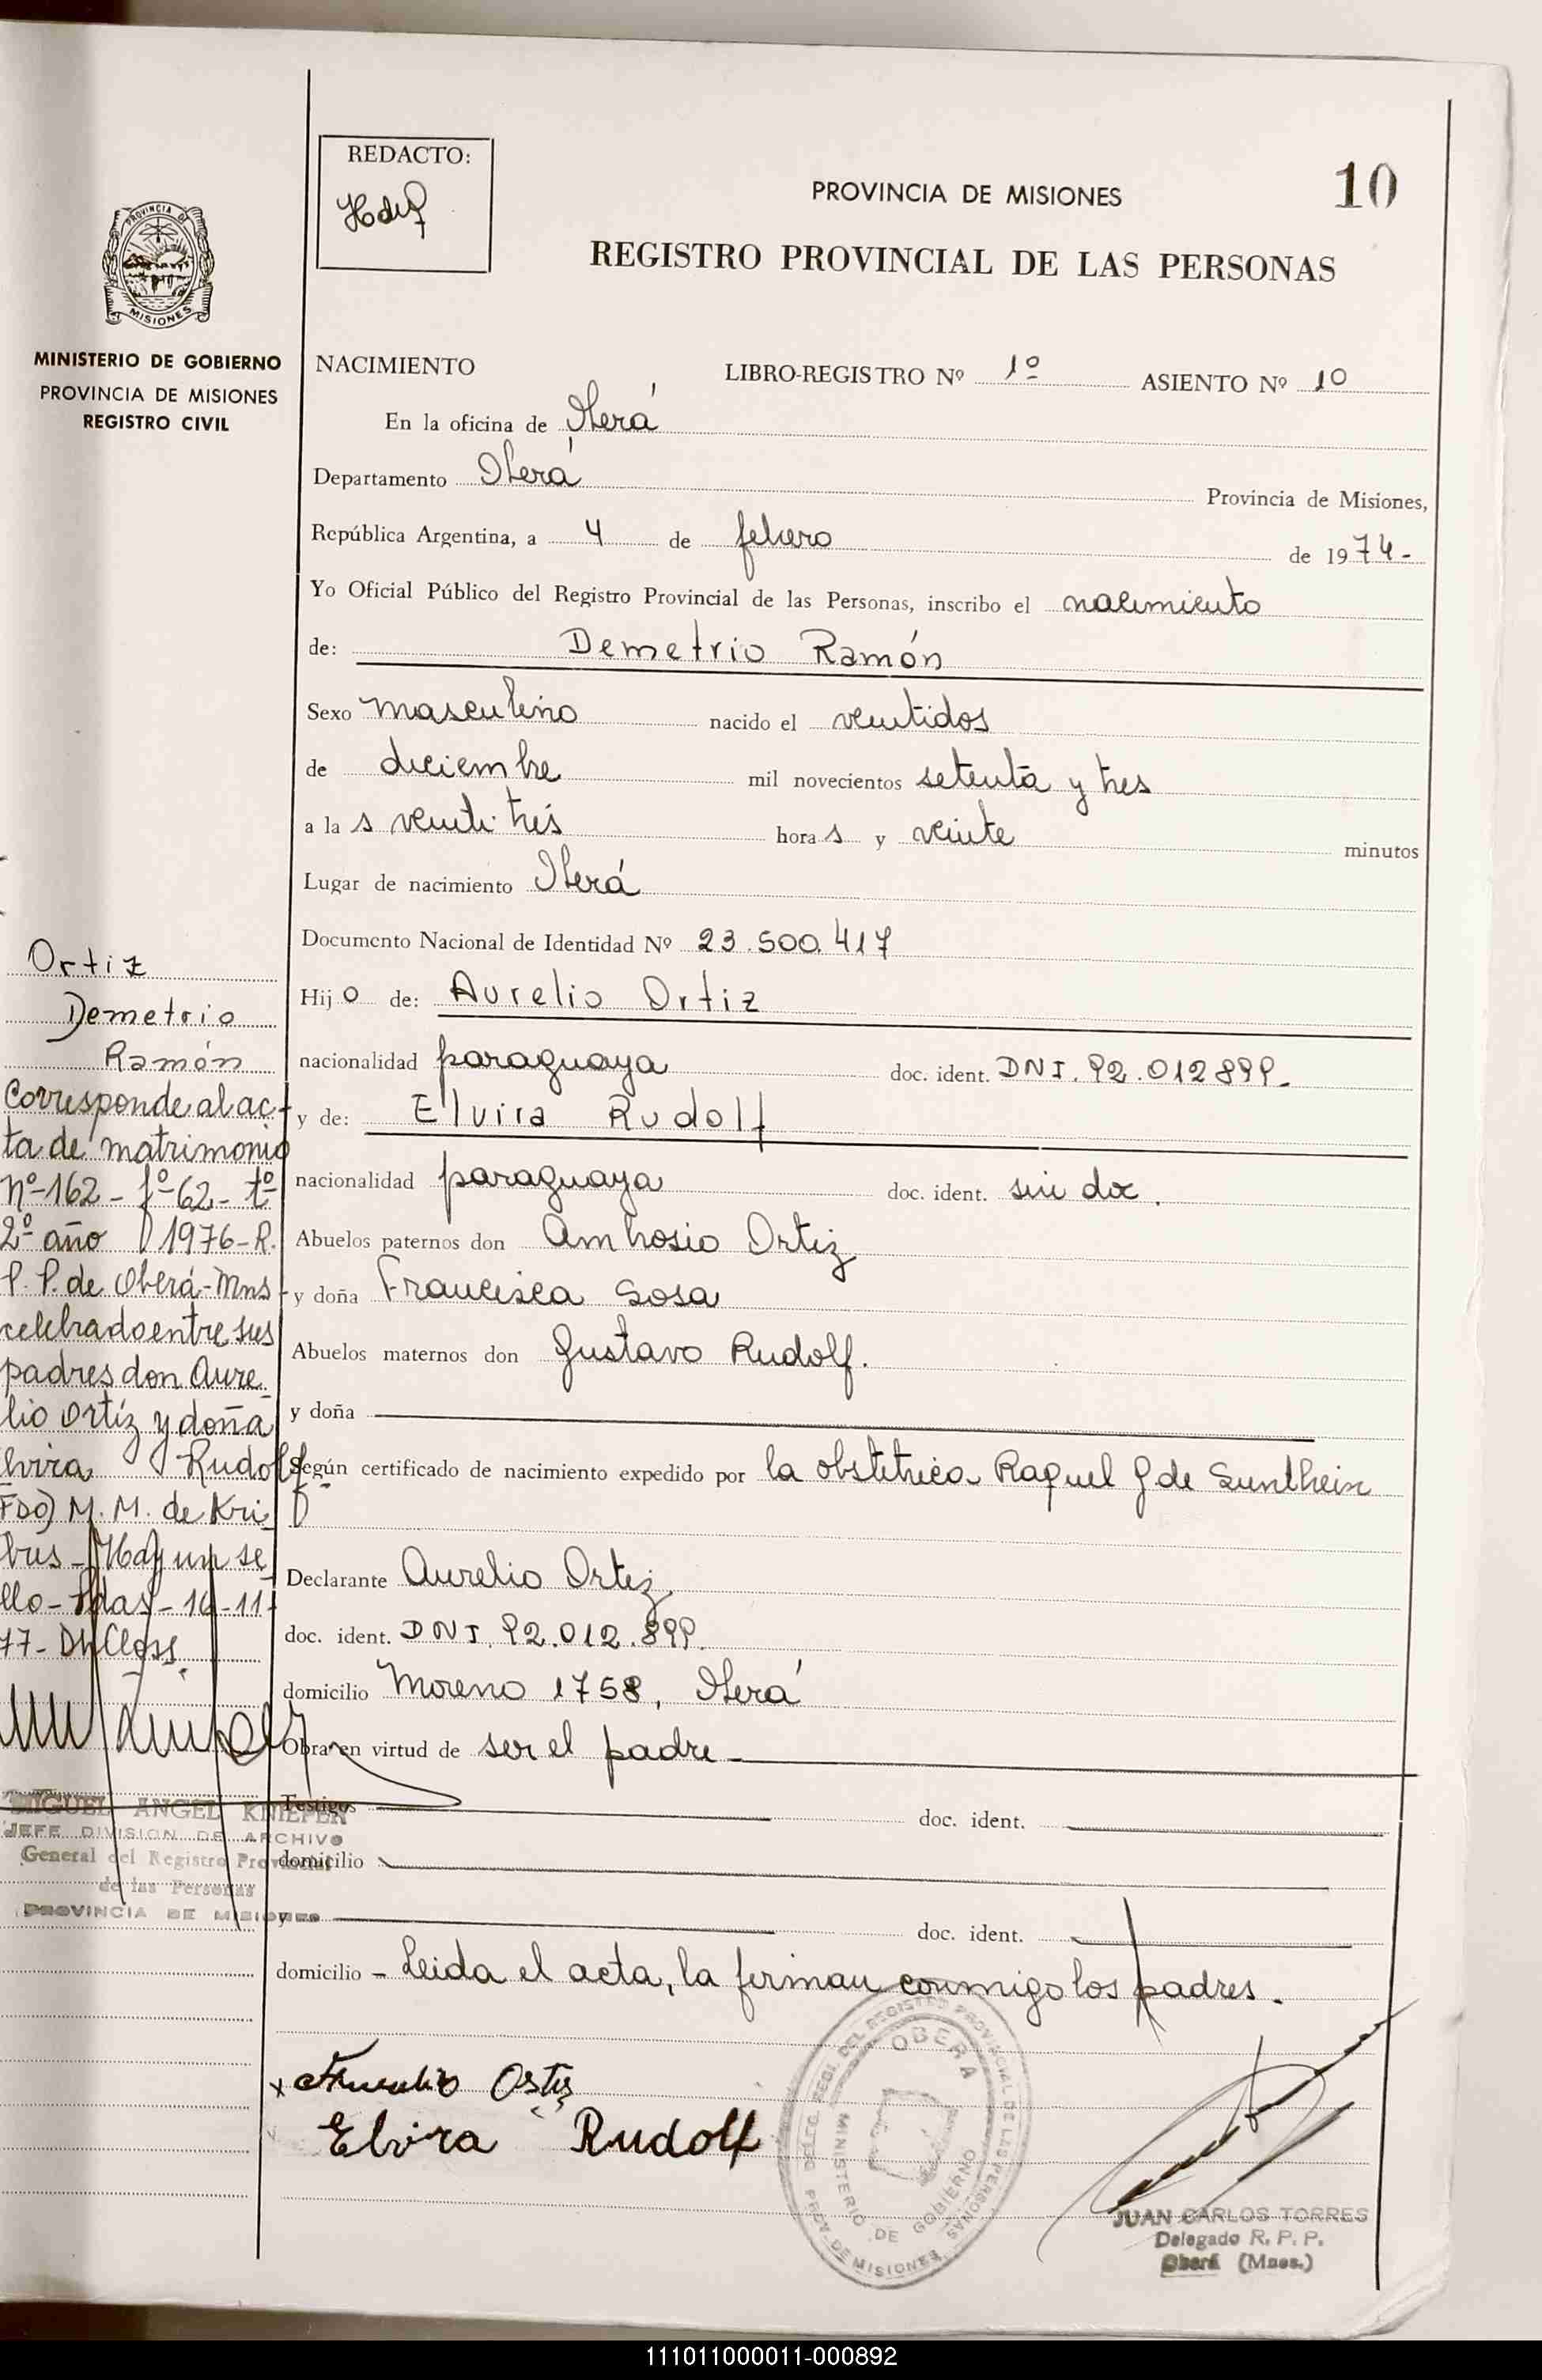 REDACTO:
PROVINCIA DE MISIONES
10
REGISTRO PROVINCIAL DE LAS PERSONAS
PROVINCIA DE
MISIONES
MINISTERIO DE GOBIERNO
PROVINCIA DE MISIONES
REGISTRO CIVIL
NACIMIENTO LIBRO-REGISTRO Nº 1º ASIENTO Nº 10
En la oficina de Oberá
Departamento Oberá Provincia de Misiones,
República Argentina, a 4 de febrero de 1974-
Yo Oficial Público del Registro Provincial de las Personas, inscribo el nacimiento
de: Demetrio Ramón
Sexo masculino nacido el veintidos
de diciembre mil novecientos setenta y tres
a la s veinti trés hora s y veinte minutos
Lugar de nacimiento Oberá
Documento Nacional de Identidad Nº 23.500.417
Hijo de: Aurelio Ortiz
nacionalidad paraguaya doc. ident. DNI. 92.012899-
y de: Elvira Rudolf
nacionalidad paraguaya doc. ident. sin doc.
Abuelos paternos don Ambrosio Ortiz
y doña Francisca Sosa
Abuelos maternos don Gustavo Rudolf.
y doña
Según certificado de nacimiento expedido por la obstétrica Raquel G de
Declarante Aurelio Ortiz
doc. ident. DNI. 92.012.899.
domicilio Moreno 1758, Oberá
Obra en virtud de ser el padre
Testigos doc. ident.
domicilio
y doc. ident.
domicilio - Leida el acta, la firman conmigo los padres.
Ortiz
Demetrio
Ramón
Corresponde al ac-
ta de matrimonio
Nº-162-fº-62-tº
2º año 1976-R.
P. P. de Oberá-Mns
celebrado entre sus
padres don Aure-
lio Ortíz y doña
lvira Rudolf
FDO) M. M. de Kri-
bus - Hay un se
llo - Pdas - 16-11-
77-
MIGUEL ANGEL KNIEPER
JEFE DIVISION DE ARCHIVO
General del Registro Provincial
de las Personas
PROVINCIA DE MISIONES
x Aurelio Ortiz
Elvira Rudolf
DELEG. REGL. DEL REGISTRO PROVINCIAL DE LAS PERSONAS
OBERA
MINISTERIO DE GOBIERNO
PROV. DE MISIONES
JUAN CARLOS TORRES
Delegado R. P. P.
Oberá (Mnes.)
111011000011-000892